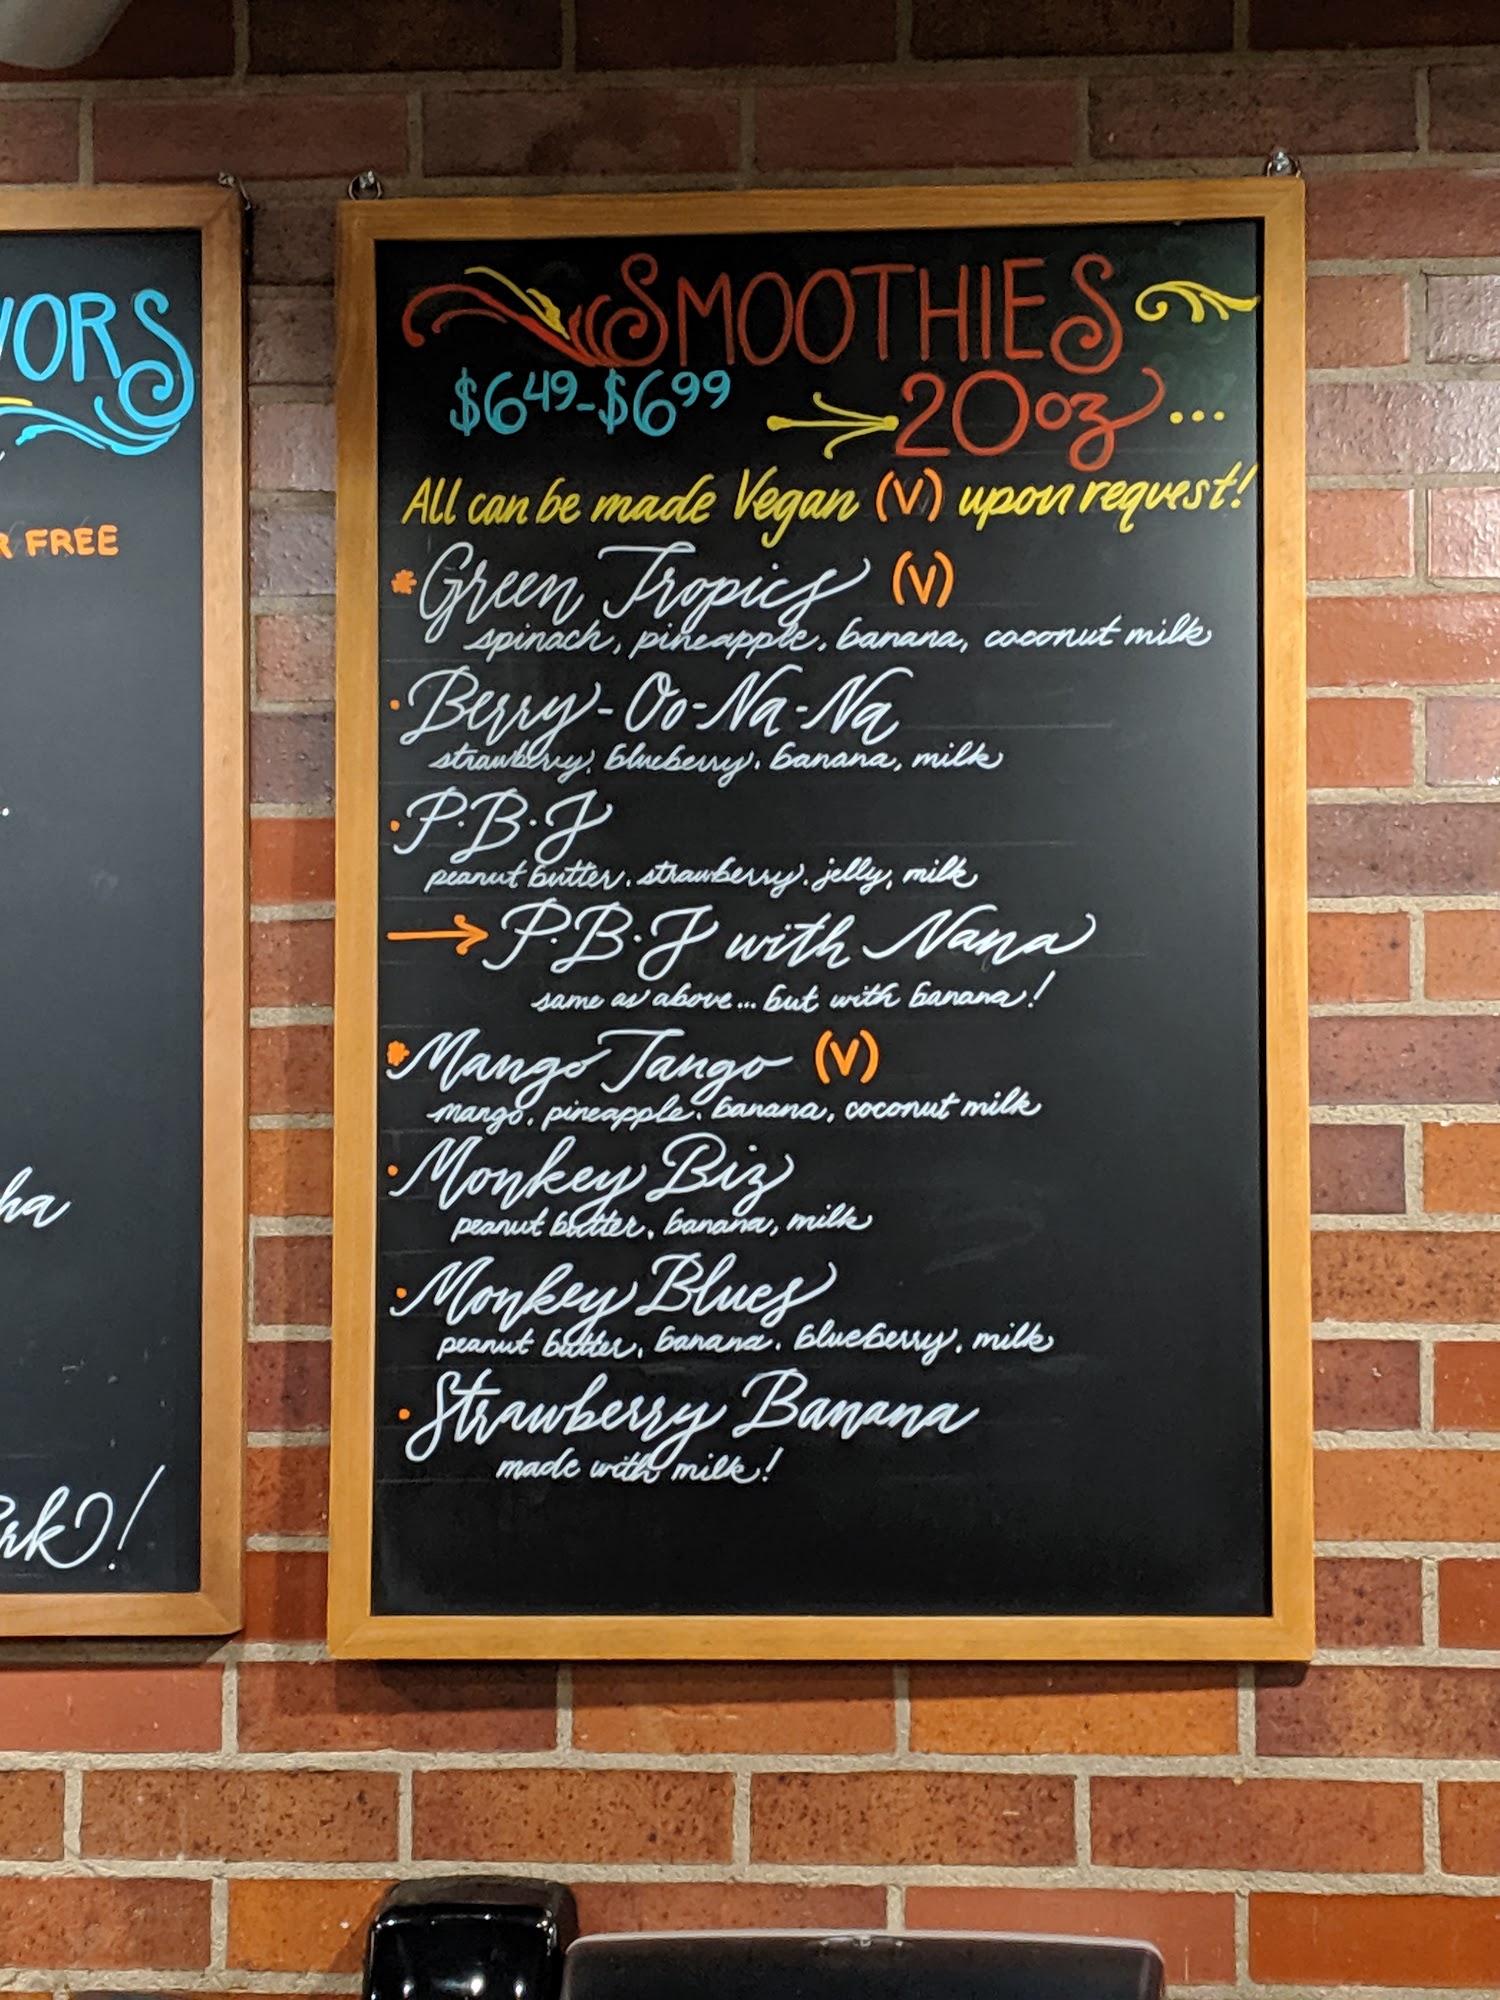 VORS
R FREE
ha
rk!
SMOOTHIES
$6.49-$6.99 20oz...
All can be made Vegan (V) upon request!
Green Tropics (V)
spinach, pineapple, banana, coconut milk
Berry-Oo-Na-Na
strawberry, blueberry, banana, milk
P.B.J
peanut butter, strawberry, jelly, milk
P.B.J with Nana
same as above... but with banana!
Mango Tango (V)
mango, pineapple, banana, coconut milk
Monkey Biz
peanut butter, banana, milk
Monkey Blues
peanut butter, banana, blueberry, milk
Strawberry Banana
made with milk!